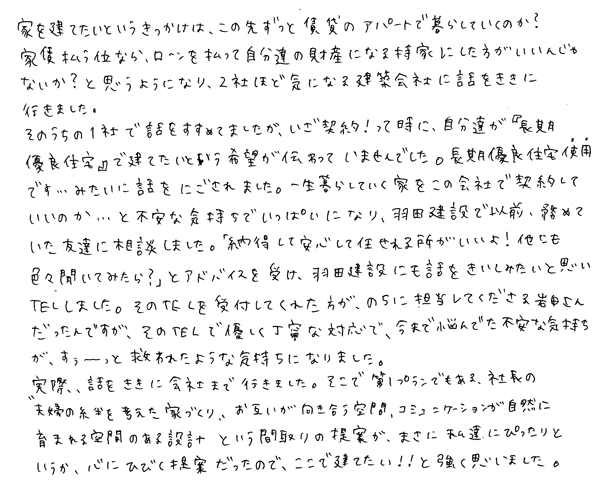 家を建てたいというきっかけは、この先ずっと賃貸のアパートで暮らしていくのか?
家賃払う位なら、ローンを払って自分達の財産になる持家にした方がいいんじゃ
ないか?と思うようになり、2社ほど気になる建築会社に話をききに
行きました。
そのうちの1社で話をすすめてましたが、いざ契約!って時に、自分達が『長期
優良住宅』で建てたいと思う希望が伝わっていませんでした。長期優良住宅使用
です…みたいに話をにごされました。一生暮らしていく家をこの会社で契約して
いいのか…と不安な気持ちでいっぱいになり、羽田建設で以前、務めて
いた友達に相談しました。「納得して安心して任せれる所がいいよ!他にも
色々聞いてみたら?」とアドバイスを受け、羽田建設にも話をきいてみたいと思い
TELしました。そのTELを受付してくれた方が、のちに担当してくださる岩田さん
だったんですが、そのTELで優しく丁寧な対応で、今まで悩んでた不安な気持ち
が、すぅーっと救われたような気持ちになりました。
実際、話をききに会社まで行きました。そこで第1プランでもある、社長の
"夫婦の絆を考えた家づくり、お互いが向き合う空間、コミュニケーションが自然に
育まれる空間のある設計" という間取りの提案が、まさに私達にぴったりと
いうか、心にひびく提案だったので、ここで建てたい!!と強く思いました。